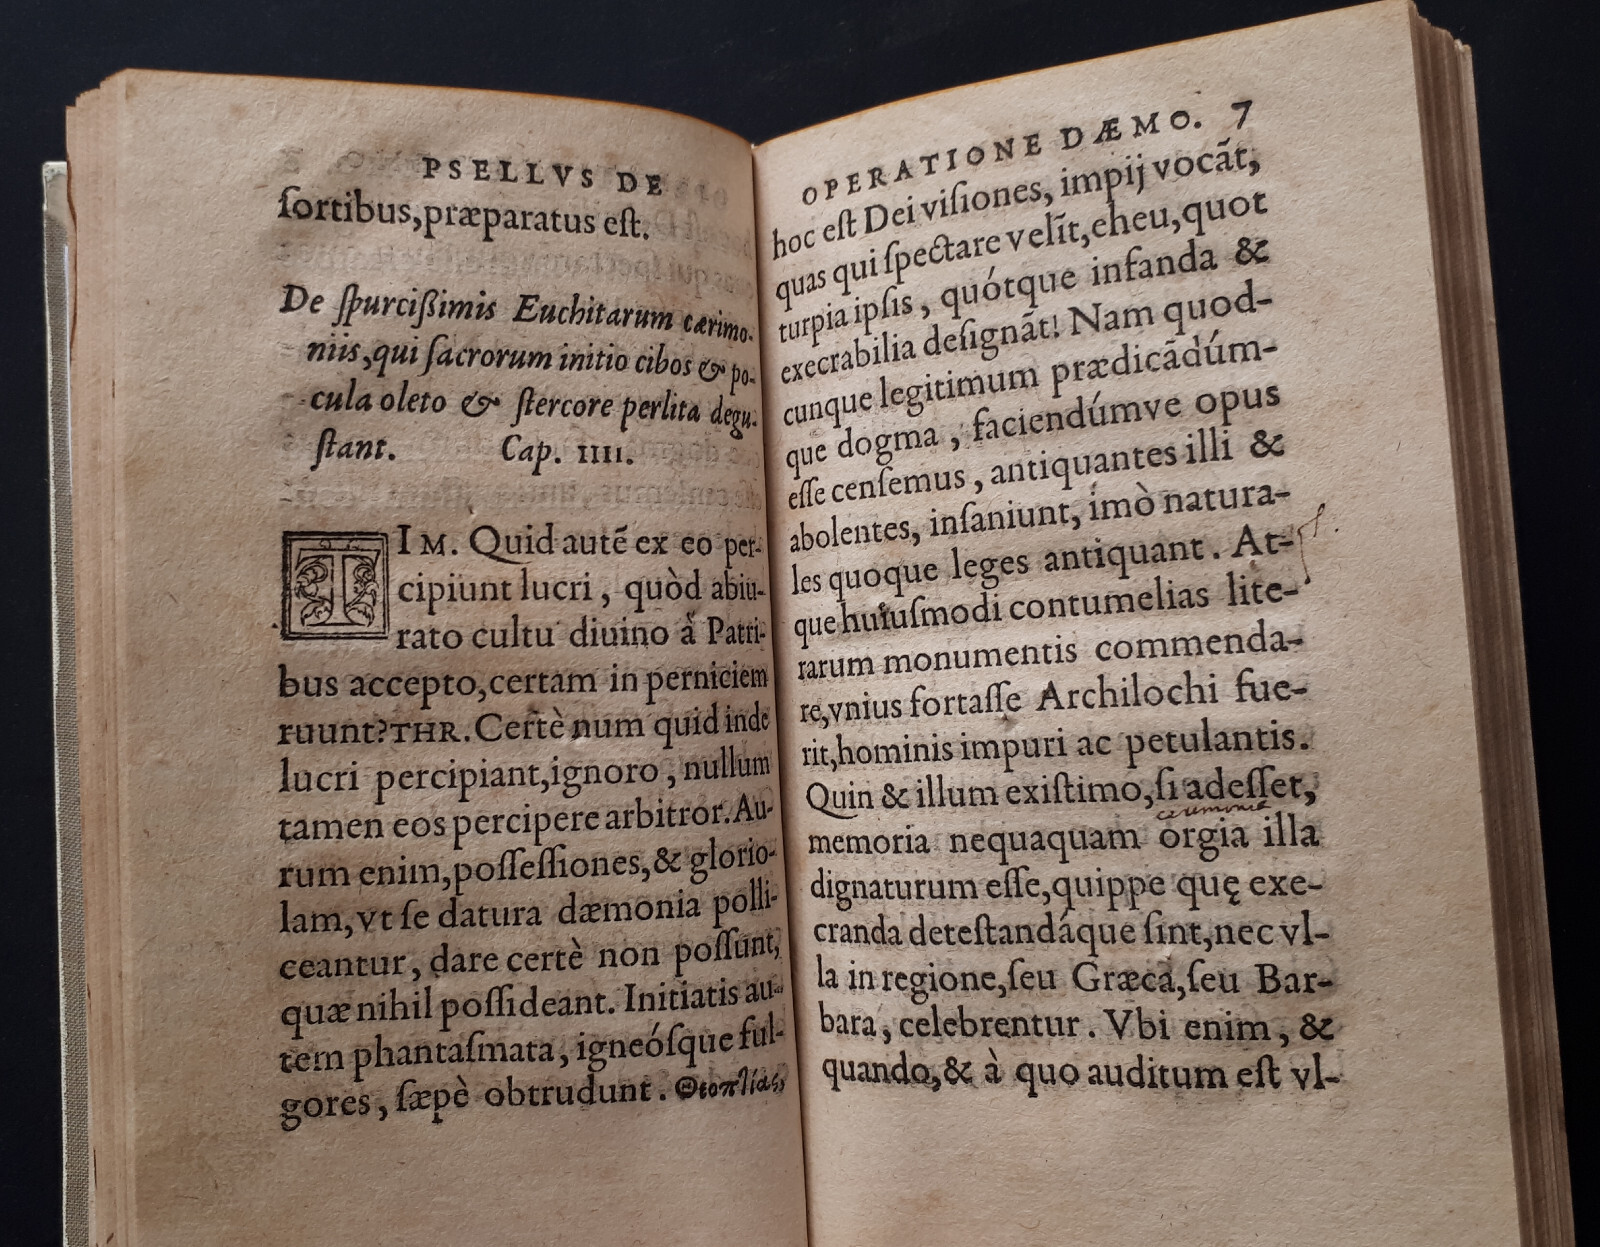 PSELLVS DE
ſortibus,præparatus eſt.
De ſpurciſsimis Euchitarum cærimo-
niis,qui ſacrorum initio cibos & po-
cula oleto & ſtercore perlita degu-
ſtant. Cap. IIII.
TIM. Quid autẽ ex eo per-
cipiunt lucri, quòd abiu-
rato cultu diuino à Patri-
bus accepto,certam in perniciem
ruunt?THR.Certè num quid inde
lucri percipiant,ignoro, nullum
tamen eos percipere arbitror.Au-
rum enim,poſſeſſiones,& glorio-
lam,vt ſe datura dæmonia polli-
ceantur, dare certè non poſſunt,
quæ nihil poſſideant. Initiatis au-
tem phantaſmata, igneóſque ful-
gores, ſæpè obtrudunt. Θεοπτίας
OPERATIONE DÆMO. 7
hoc eſt Dei viſiones, impij vocãt,
quas qui ſpectare velĩt,eheu,quot
turpia ipſis, quótque infanda &
execrabilia deſignãt! Nam quod-
cunque legitimum prædicãdúm-
que dogma, faciendúmve opus
eſſe cenſemus, antiquantes illi &
abolentes, inſaniunt, imò natura-
les quoque leges antiquant. At-
que huiuſmodi contumelias lite-
rarum monumentis commenda-
re,vnius fortaſſe Archilochi fue-
rit,hominis impuri ac petulantis.
Quin & illum exiſtimo,ſi adeſſet,
memoria nequaquam orgia illa
dignaturum eſſe,quippe quę exe-
cranda deteſtandáque ſint,nec vl-
la in regione,ſeu Græca,ſeu Bar-
bara, celebrentur. Vbi enim, &
quando,& à quo auditum eſt vl-